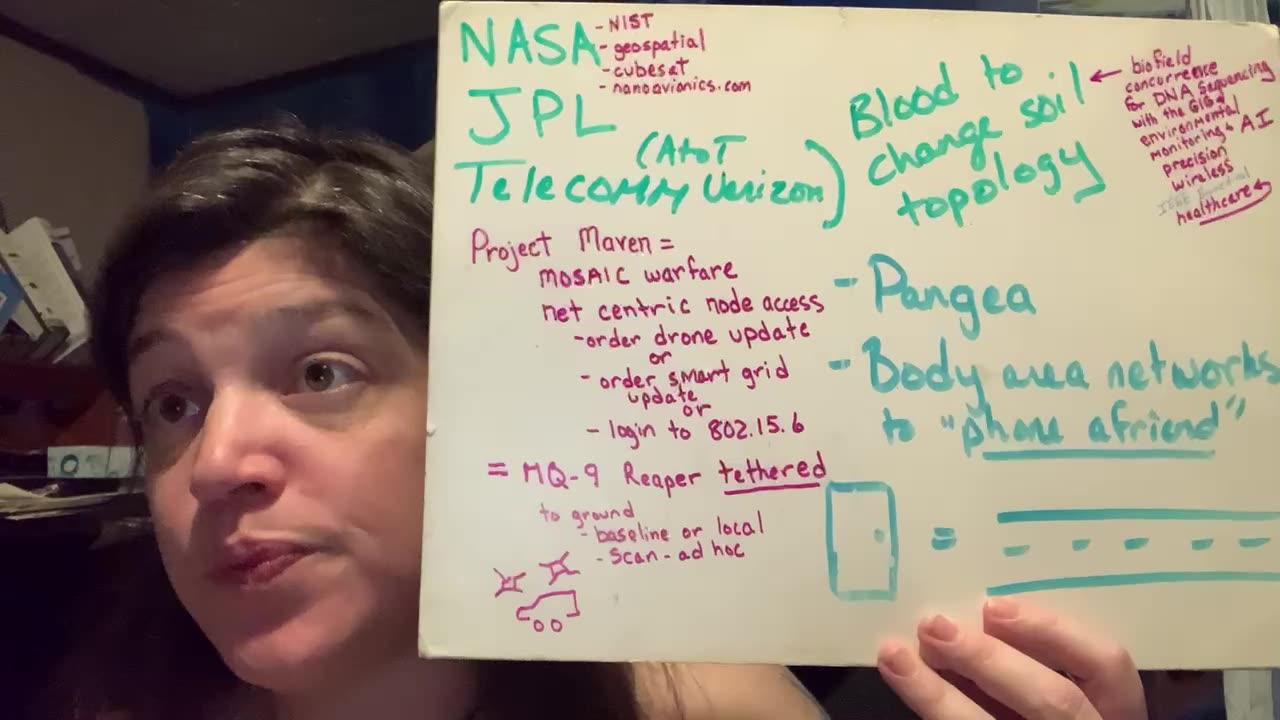 NASA
- NIST
- geospatial
- cubesat
- nanoavionics.com
JPL
Telecomm (AtoT
Verizon)
Project Maven =
MOSAIC warfare
net centric node access
- order drone update
or
- order smart grid
update
or
- login to 802.15.6
= MQ-9 Reaper tethered
to ground
- baseline or local
- Scan - ad hoc
Blood to
change soil
topology
← biofield
concurrence
for DNA Sequencing
with the
environmental
monitoring & AI
precision
wireless
healthcare
- Pangea
- Body area networks
to "phone a friend"
=